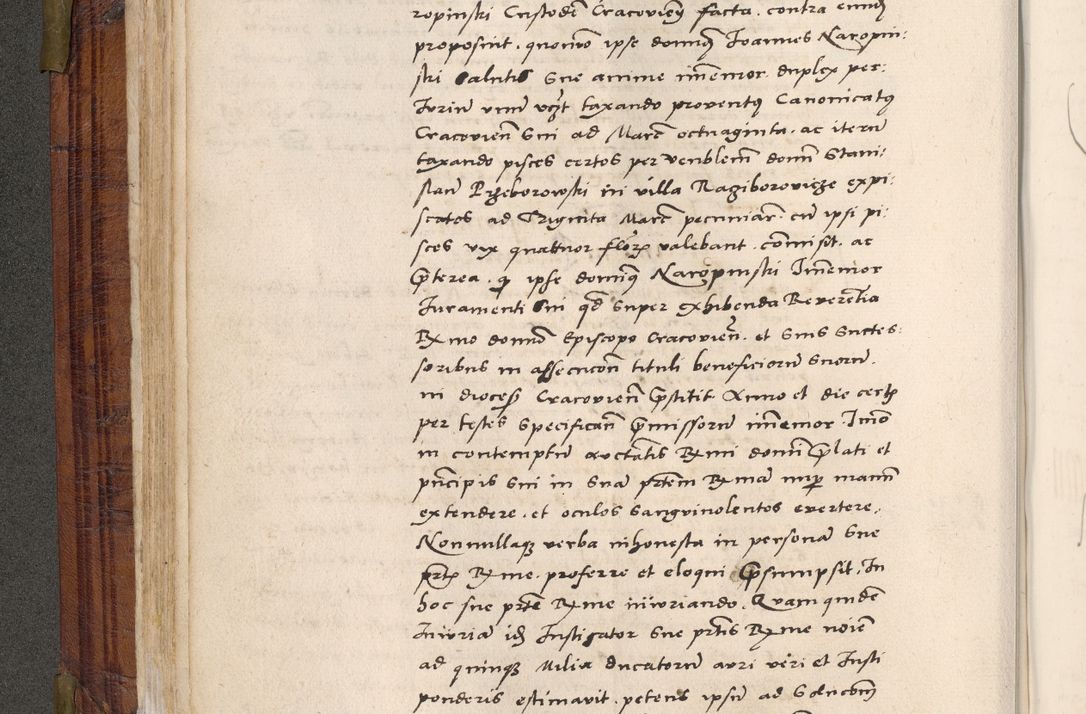 ropinski Custodem Cracovien facta. contra eundem
proposuit. quomodo ipse dominus Joannes Naropin:
ski salutis sue anime immemor duplex per:
Jurium unum videlicet taxando proventus Canonicatus
Cracovien sui ad Marc octuaginta. ac iterum
taxando pisces certos per venblem domin Stani:
slaum Przeborowski in villa Raziborovicze expi:
scatos ad Triginta Marc pecuniar. cum ipsi pi:
sces vix quattuor floren valebant. commisit. ac
preterea. quod ipse dominus Naropinski Immemor
Juramenti sui quod super exhibenda Reverentia
Rmo domino Episcopo Cracovien. et suis succes:
soribus in assecucione tituli beneficiorum suorum.
in diocesi Cracovien prestitit Anno et die certis
per testes specifican premissorum immemor. Imo
in contemptum auctatis Rmi domini prelati et
principis sui in sua prtem Rmam nuper manum
extendere. et oculos sanguinolentos evertere.
Nonnullaque verba inhonesta in persona sue
prtis Rme. proferre et eloqui presumpsit. In
hoc sue prte Rme iniuriando. Quam quidem
Iniuria idem Instigator sue prtis Rme noie
ad quinque Milia ducatorum auri veri et Justi
ponderis estimavit. petens ipsum ad solucom